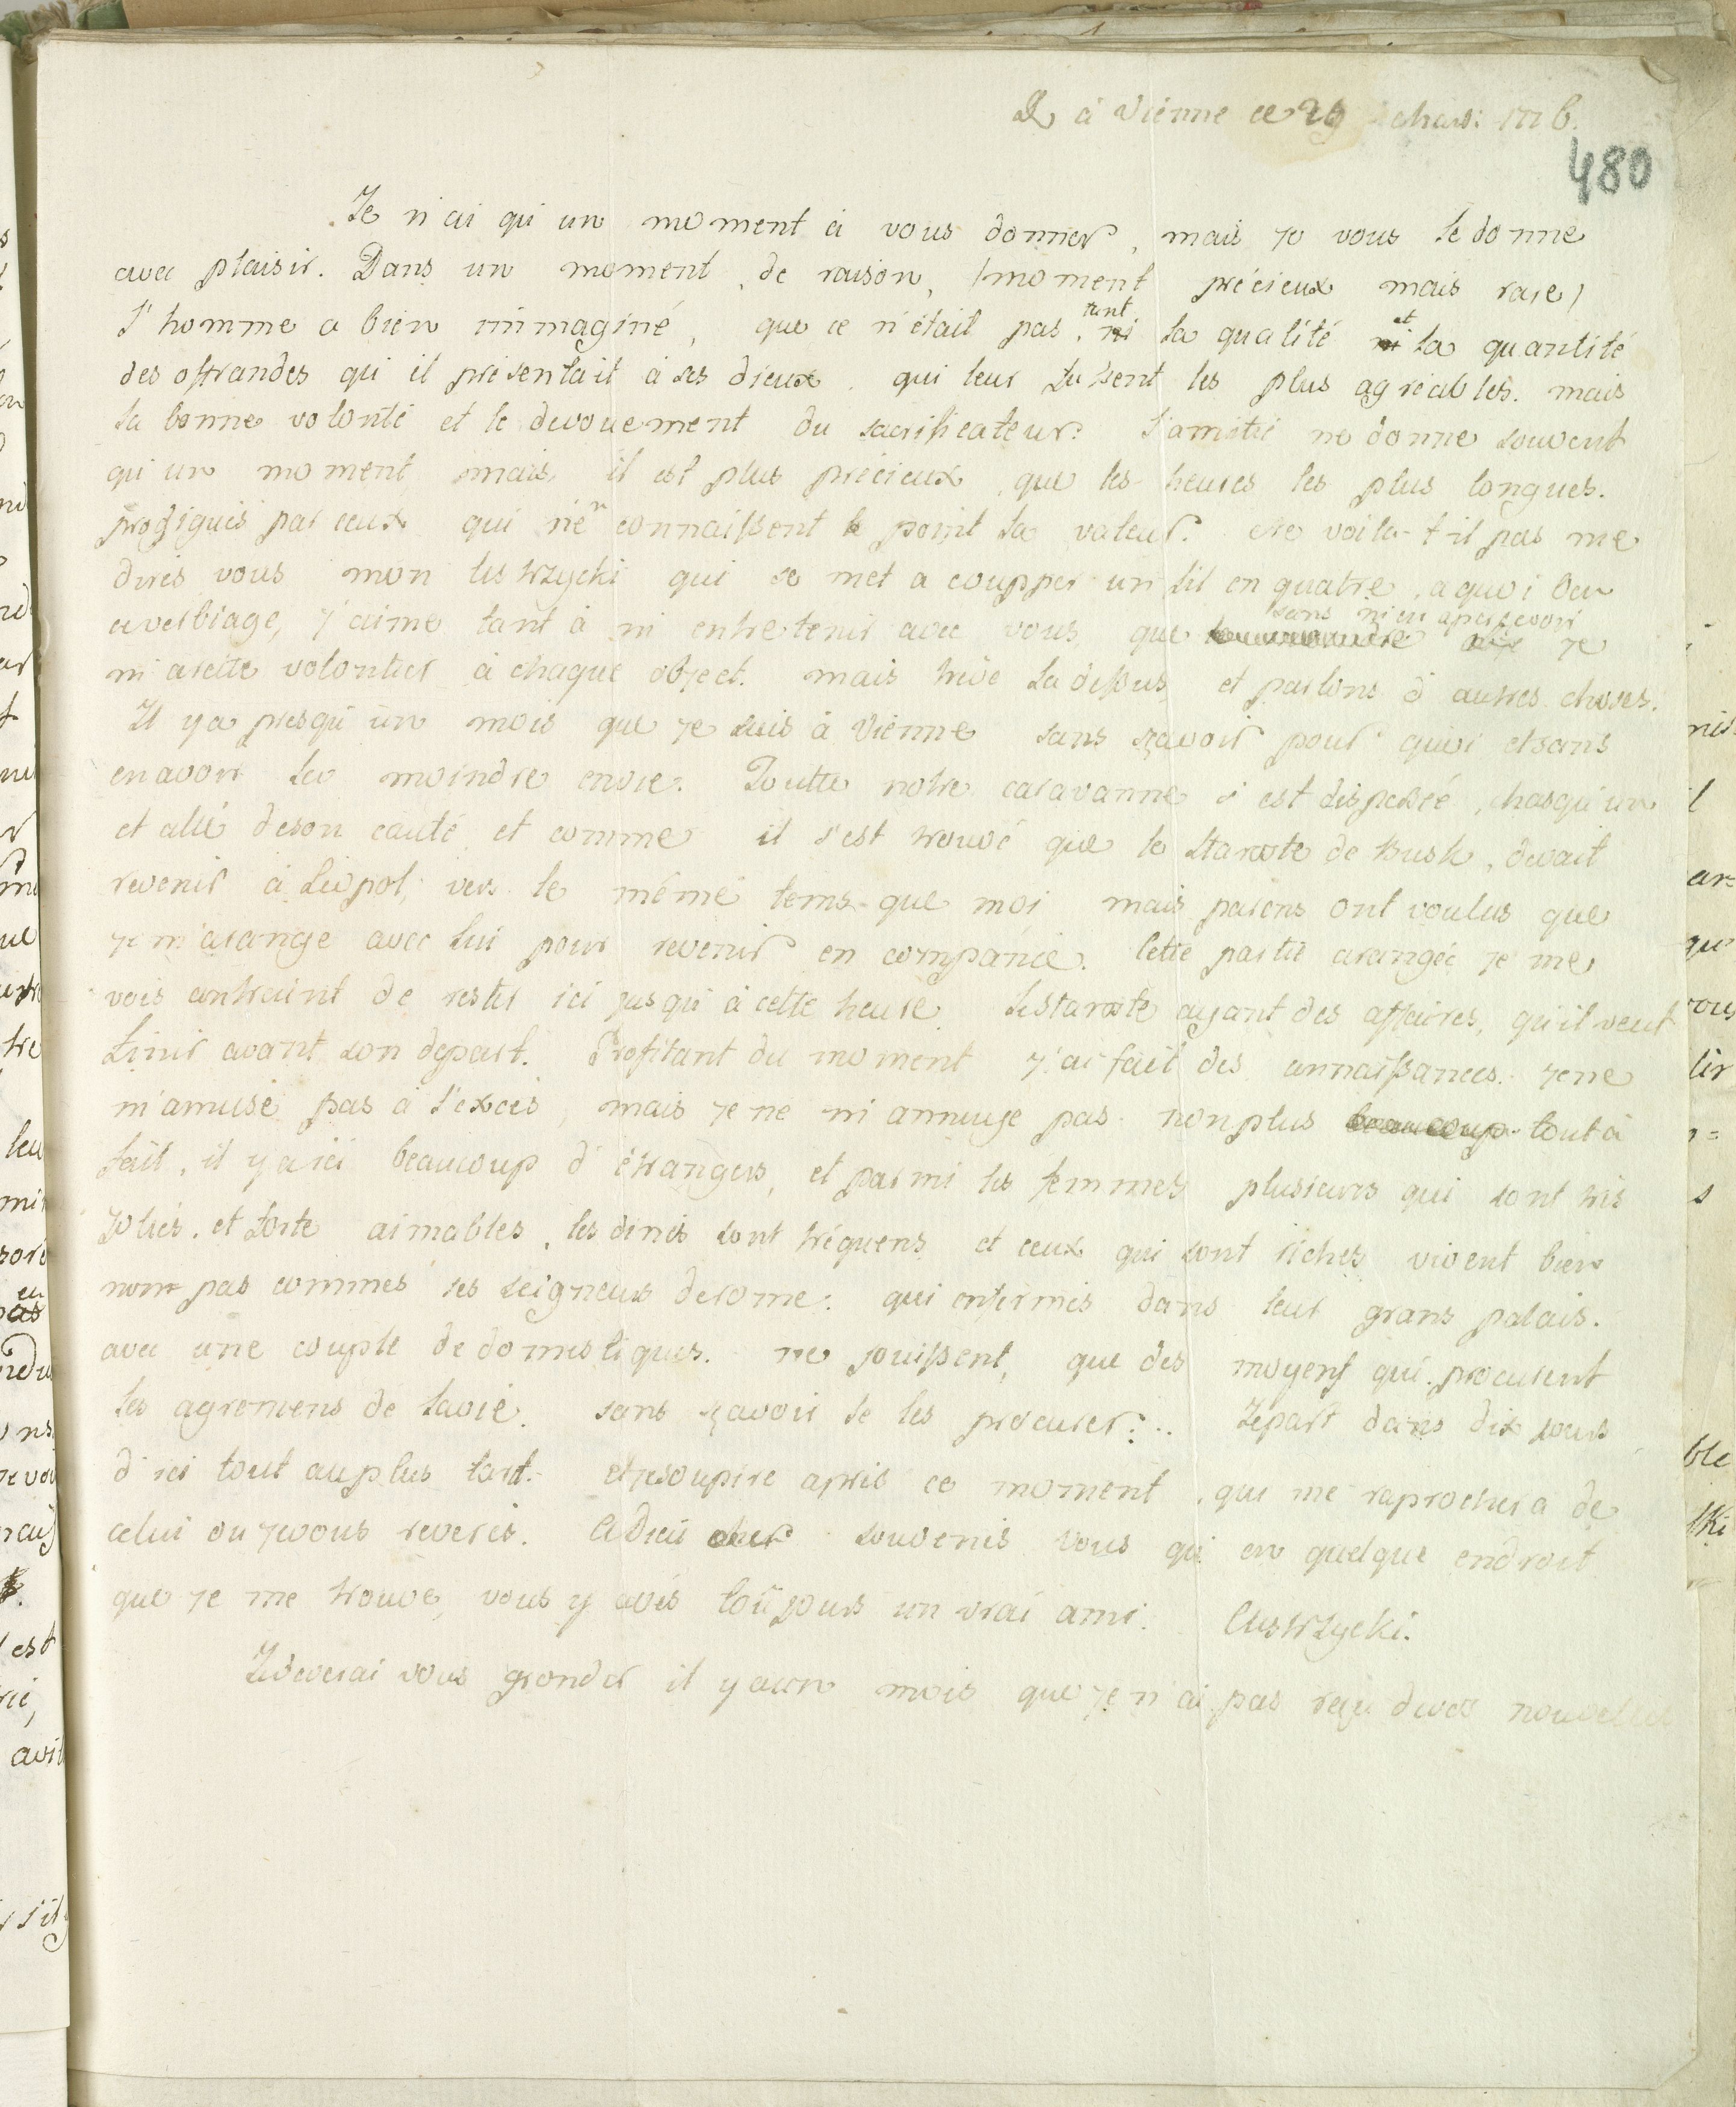 à Vienne ce 29 1776.
480
Je n'ai qu'un moment à vous donner, mais je vous le donne
avec plaisir. Dans un moment de raison, (moment précieux mais rare)
l'homme a bien immaginé, que ce n'était pas tant la qualité et la quantité
des offrandes qu'il présentait à ses dieux, qui leur fussent les plus agréables. mais
la bonne volonté et le devouement du sacrificateur: l'amitié ne donne souvent
qu'un moment, mais, il est plus précieux, que les heures les plus longues.
prodigués par ceux qui n'en connaissent point la valeur. Ne voila-t-il pas me
dirés vous mon Ustrzycki qui se met a coupper un fil en quatre, a quoi bon
ce verbiage, j'aime tant à m'entretenir avec vous que sans m'en apercevoir je
m'arette volontier à chaque object. mais trève la dessus, et parlons d'autres choses.
Il y a presqu'un mois que je suis à Vienne sans sçavoir pour quoi et sans
en avoir la moindre envie. Toutte notre caravanne s'est dispersée, chasqu'un
et allé de son cauté, et comme il s'est trouvé que le Staroste de Busk, devait
revenir à Léopol, vers le même tems que moi mais parens ont voulus que
je m'arange avec lui pour revenir en companie. Cette partie arangée je me
vois antraint de rester ici jusqu'à cette heure. Le staroste ayant des affaires, qu'il veut
finir avant son depart. Profitant du moment j'ai fait des connaissances. je ne
m'amuse pas à l'excès, mais je ne m'annuye pas non plus beaucoup tout à
fait, il y a ici beaucoup d'étrangers, et parmi les femmes plusieurs qui sont très
joliés. et forte aimables, les dinés sont fréquens et ceux qui sont riches vivent bien
non pas commes les seigneurs de rome: qui enfermés dans leur grans palais.
avec une couple de domestiques. ne jouissent, que des moyens qui procurent
les agremens de la vie. sans sçavoir se les procurer:.. Je part dans dix jours
d'ici tout au plus tart. et je soupire après ce moment, qui me raprochera de
celui ou je vous reverés. Adieu cher souvenés vous qu'en quelque endroit
que je me trouve, vous y avés toûjours un vrai ami. Ustrzycki.
Je deverai vous gronder il y a un mois que je n'ai pas reçu de vos nouvelles